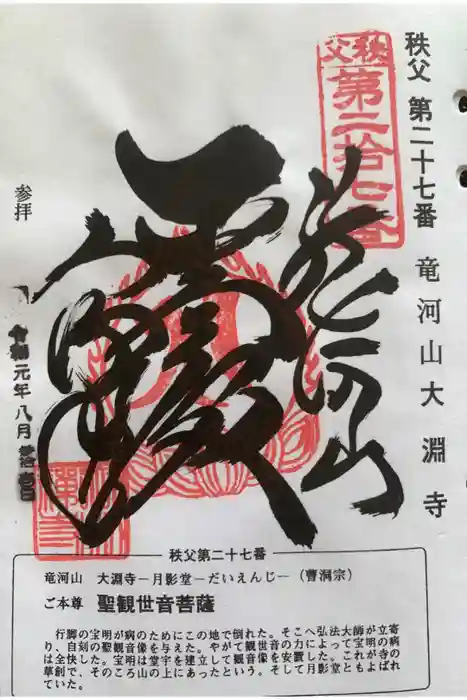 秩父 第二十七番 竜河山大淵寺
秩父
第二拾七番
竜河山
参拝
令和元年八月
秩父第二十七番
竜河山 大淵寺―月影堂―だいえんじ―(曹洞宗)
ご本尊 聖観世音菩薩
行脚の宝明が病のためにこの地で倒れた。そこへ弘法大師が立寄
り、自刻の聖観音像を与えた。やがて観世音の力によって宝明の病
は全快した。宝明は堂宇を建立して観音像を安置した。これが寺の
草創で、そのころ山の上にあったという。そして月影堂ともよばれ
ていた。